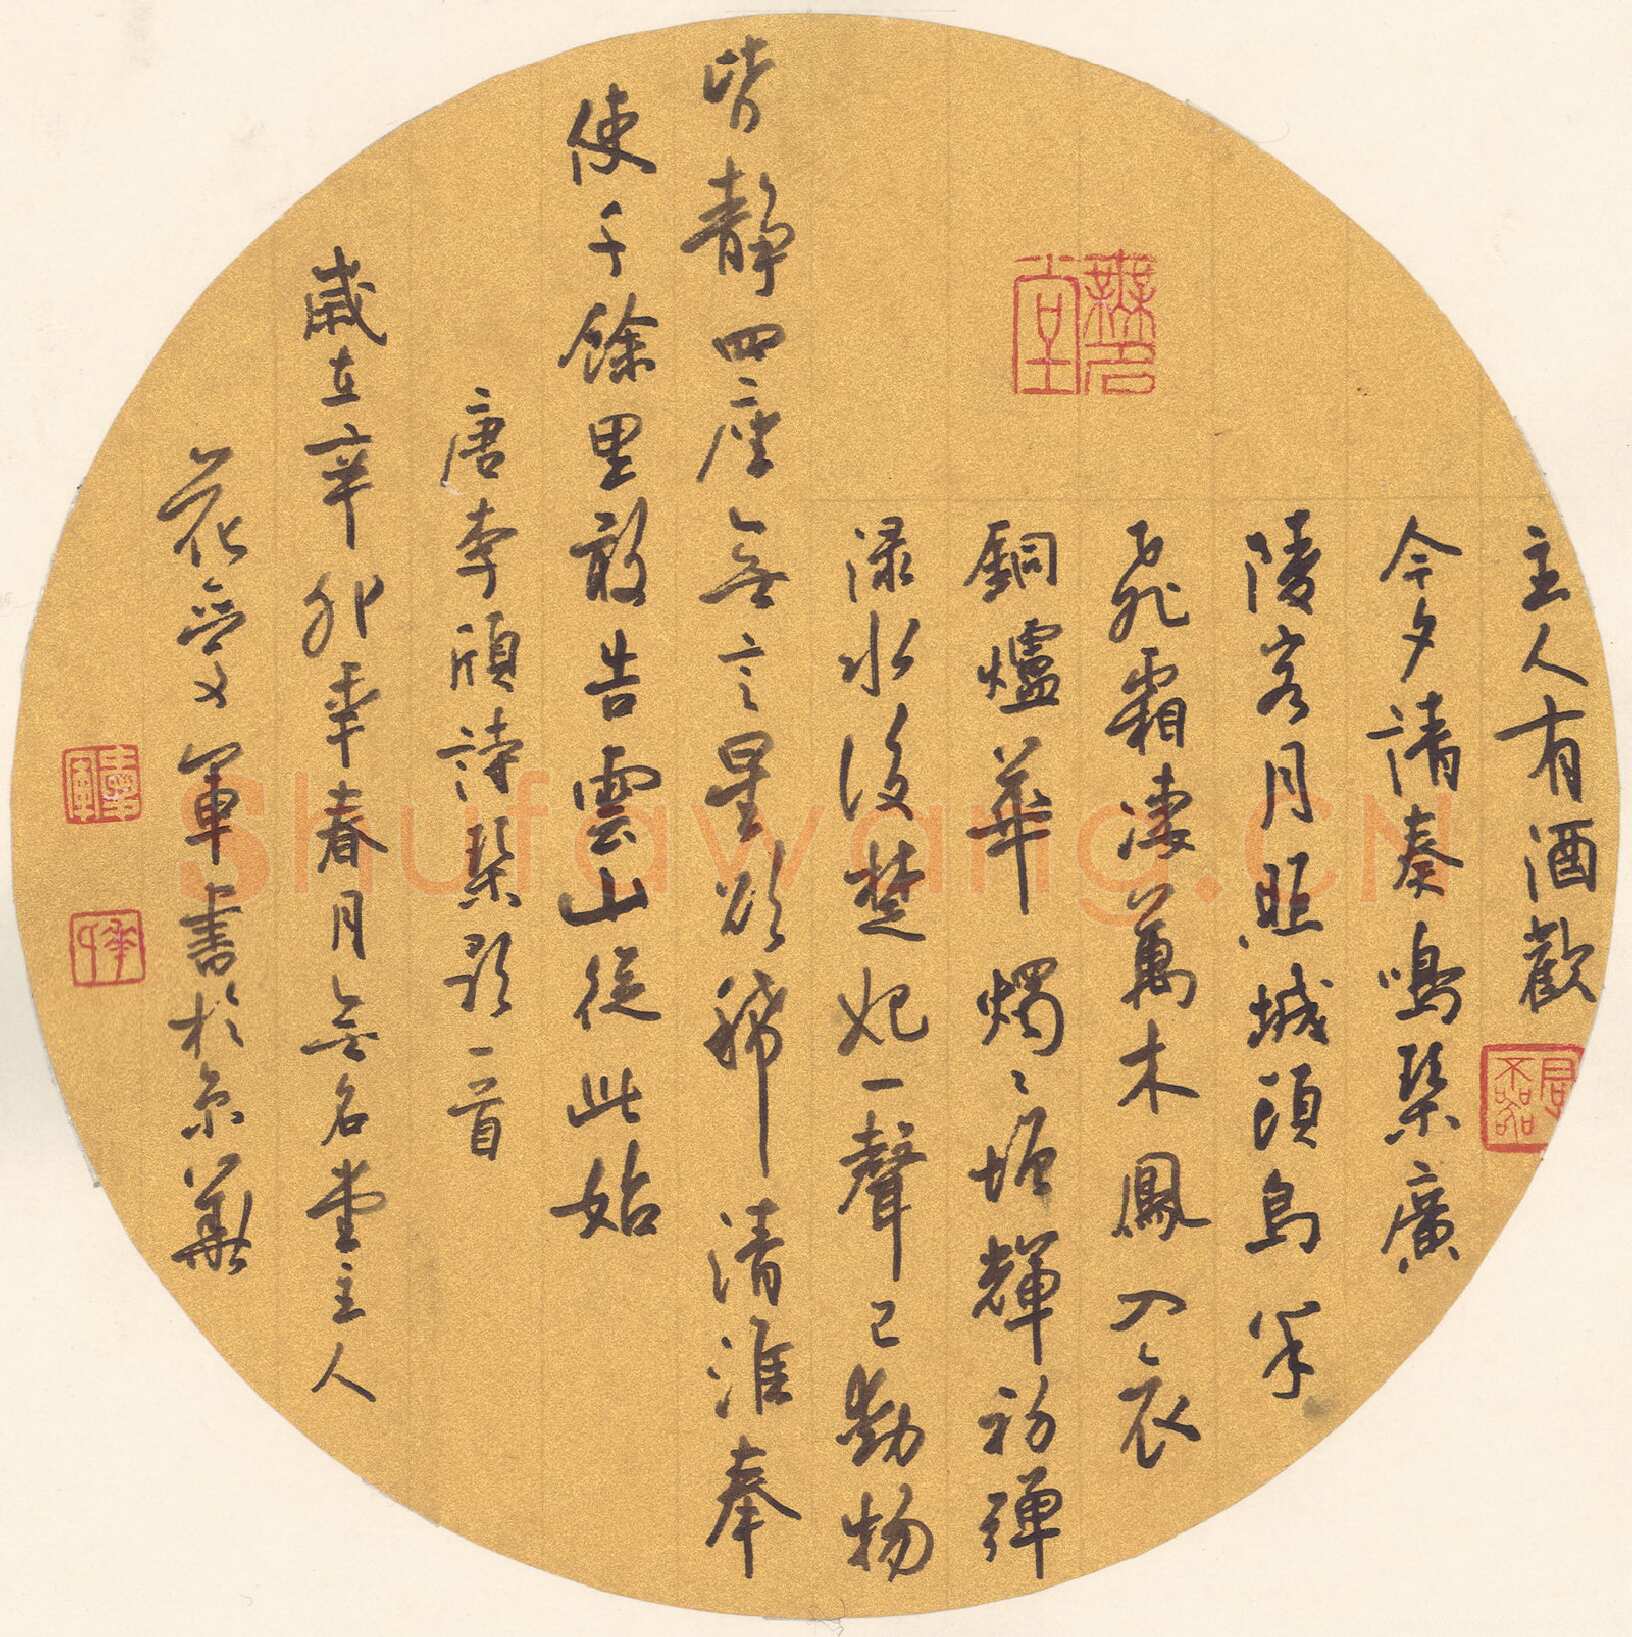 主人有酒歡
今夕請奏鳴琴廣
陵客月照城頭烏半
飛霜凄萬木風入衣
銅爐華燭燭增輝初彈
淥水後楚妃一聲已動物
皆靜四座無言星欲稀清淮奉
使千餘里敢告雲山從此始
唐李頎詩琴歌一首
歲在辛卯年春月無名堂主人
花受文軍書於京華
無名堂
Shufawang.CN